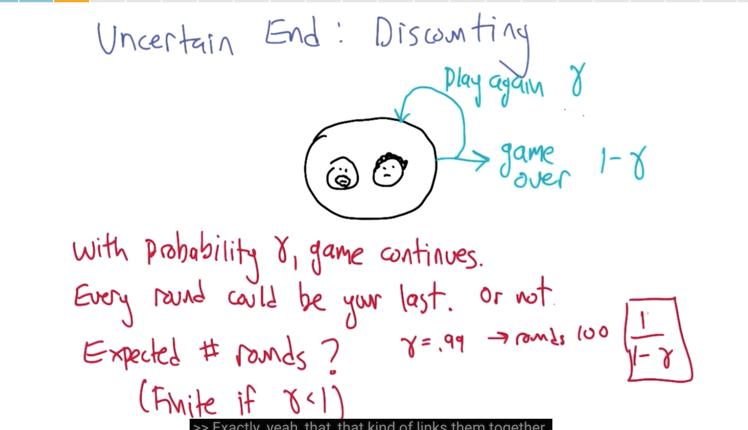 Uncertain End: Discounting
Play again γ
game over 1-γ
With probability γ, game continues.
Every round could be your last. Or not.
Expected # rounds? γ=.99 → rounds 100 1/1-γ
(Finite if γ<1)
>> Exactly, yeah, that, that kind of links them together.